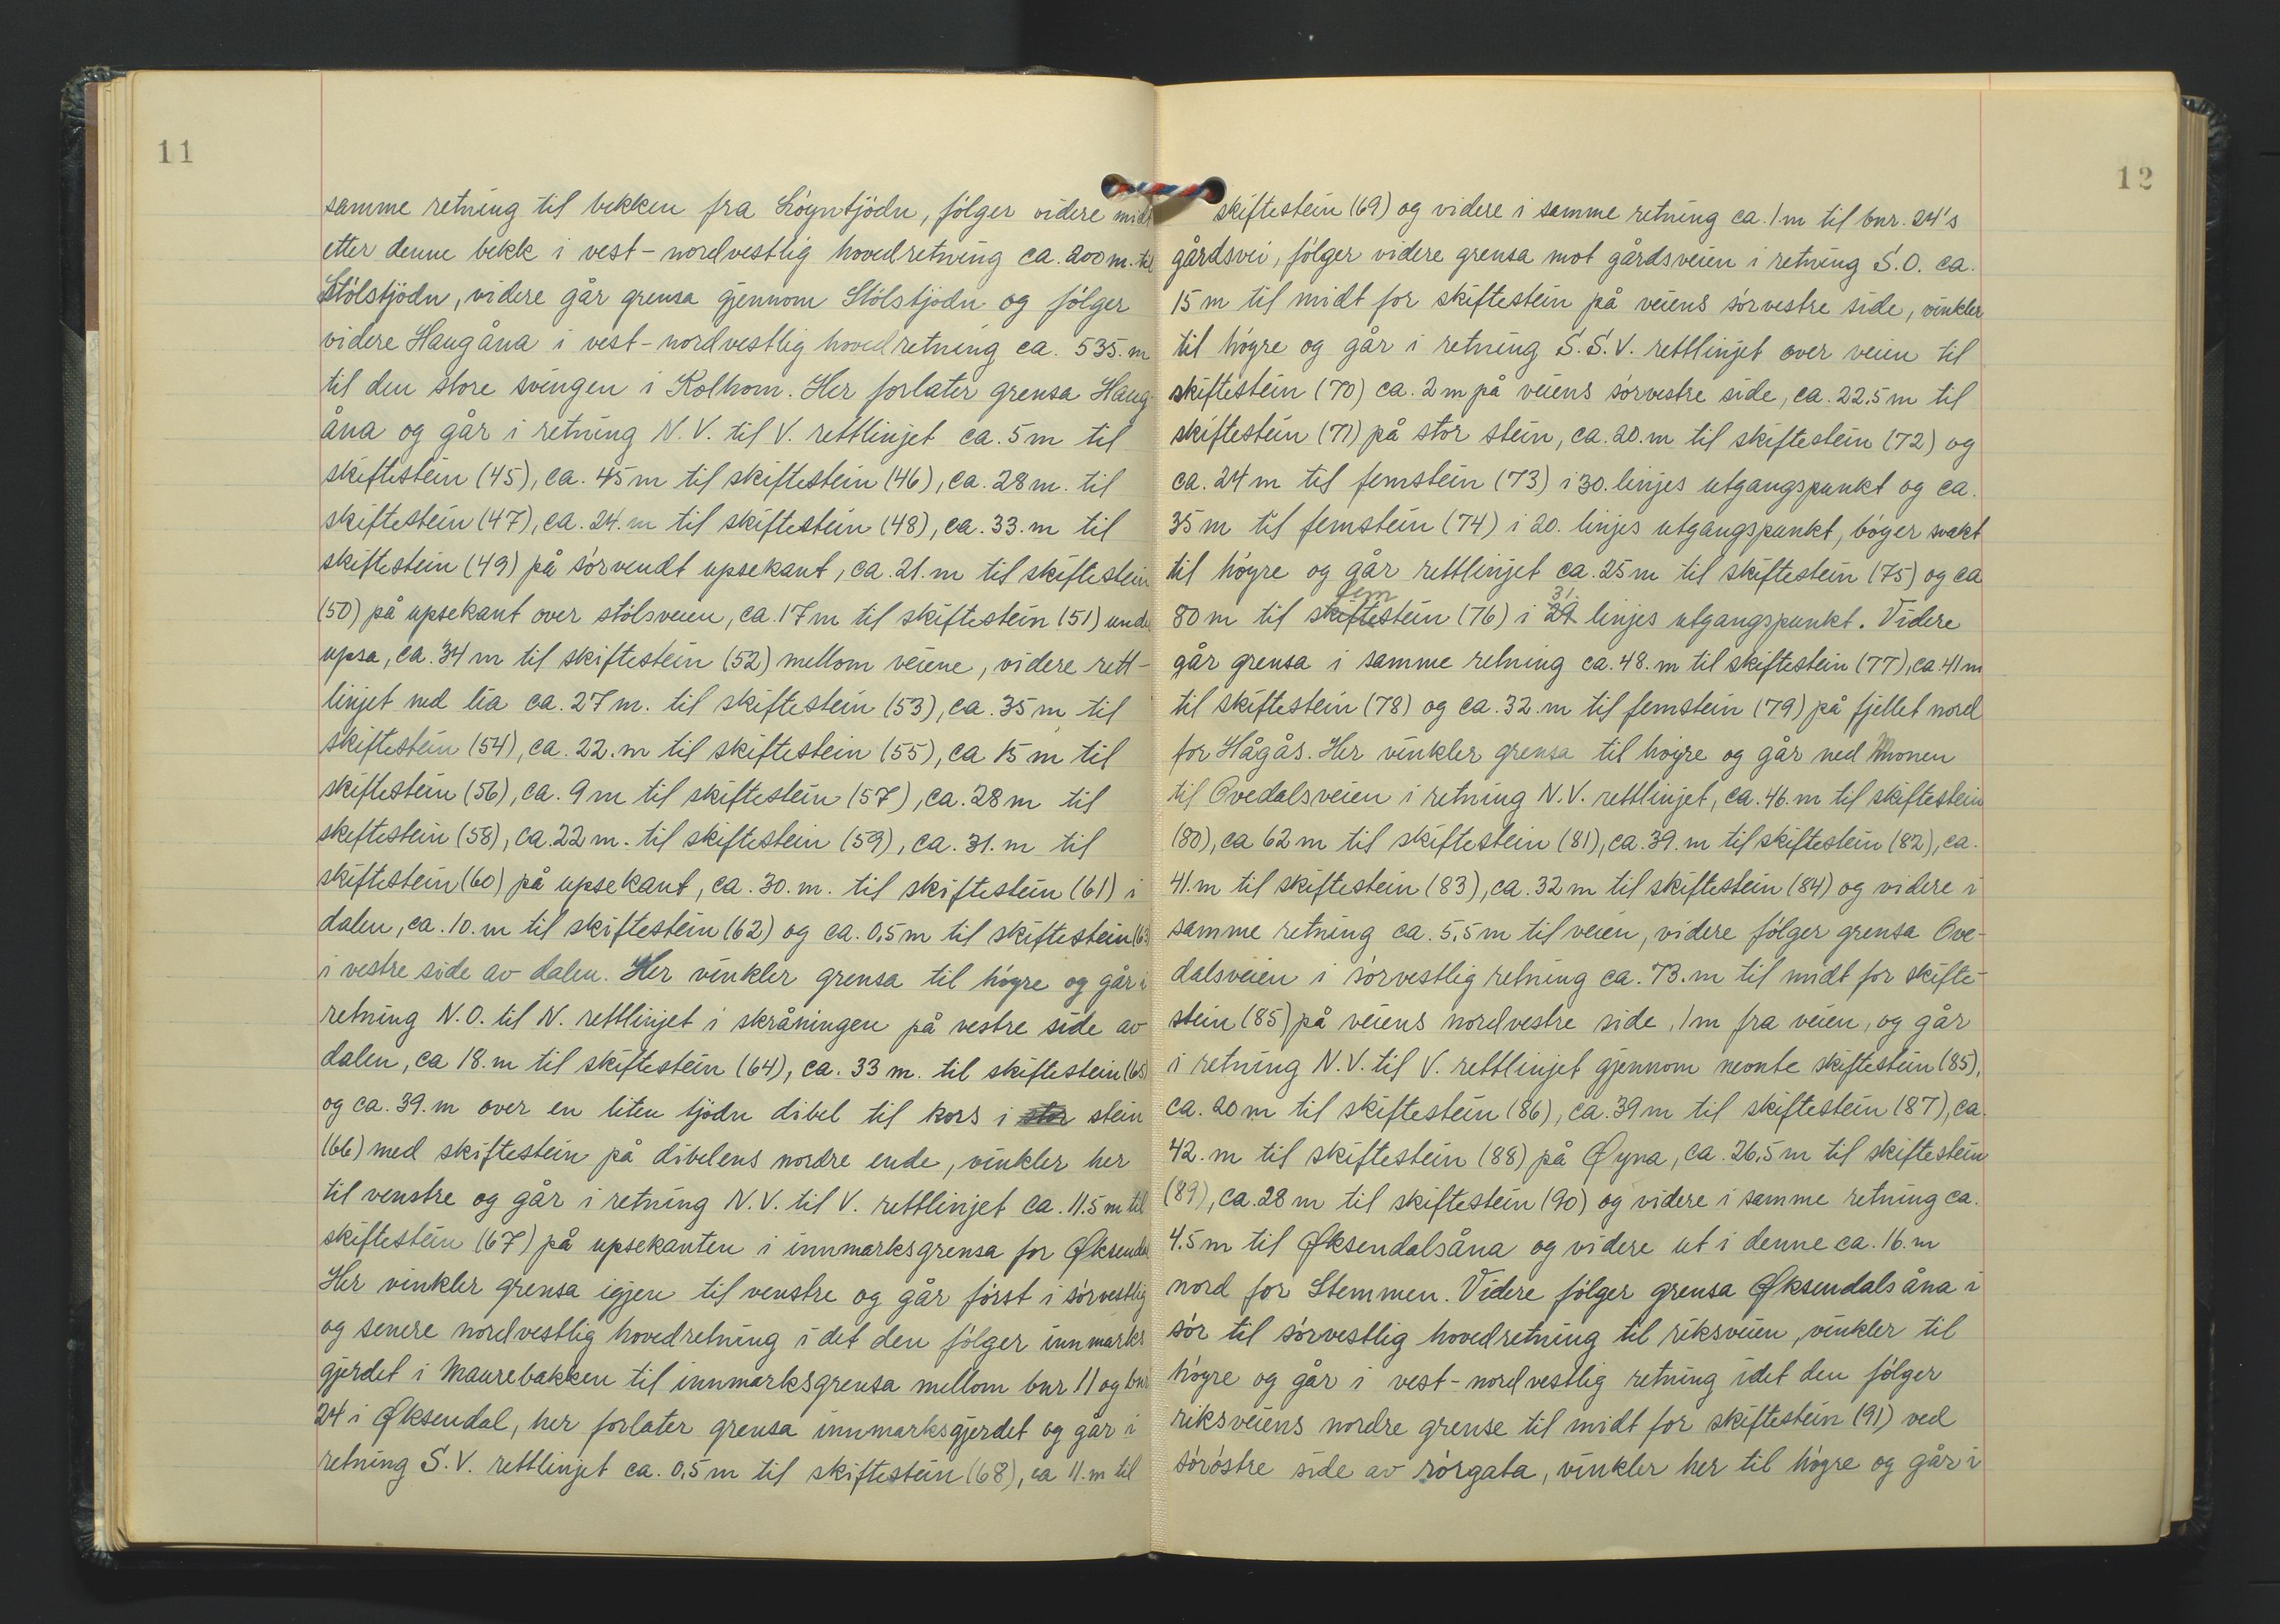 11
samme retning til bekken fra Løgntjödn, følger videre midt
etter denne bekk i vest-nordvestlig hovedretning ca. 200 m. til
Stólstjödn, videre går grensa gjennom Stólstjodn og fólger
videre Haugåna i vest-nordvestlig hovedretning ca. 535. m
til den store svingen i Kolhom. Her forlater grensa Haug-
åna og går i retning N.V. til V. rettlinjet ca. 5 m til
skiftestein (45), ca. 45 m til skiftestein (46), ca. 28 m. til
skiftestein (47), ca. 24. m til skiftestein (48), ca. 33. m til
skiftestein (49) på sórvendt upsekant, ca. 21. m til skiftestein
(50) på upsekant over stólsveien, ca. 17 m til skiftestein (51) unde
upsa, ca. 34 m til skiftestein (52) mellom veiene, videre rett-
linjet ned lia ca. 27 m. til skiftestein (53), ca. 35 m til
skiftestein (54), ca. 22. m til skiftestein (55), ca 15 m til
skiftestein (56), ca. 9 m til skiftestein (57), ca. 28 m til
skeftestein (58), ca. 22 m. til skiftestein (59), ca. 31. m til
skiftestein (60) på upsekant, ca. 30. m. til skiftestein (61) i
dalen, ca. 10. m til skiftestein (62) og ca. 0,5 m til skiftestein (63
i vestre side av dalen. Her vinkler grensa til hógre og går i
retning N.O. til N. rettlinjet i skråningen på vestre side av
dalen, ca 18. m til skiftestein (64), ca. 33 m. til skiftestein (65)
og ca. 39. m over en liten tjödn dibel til kors i stor stein
(66) med skiftestein på dibelens nordre ende, vinkler her
til venstre og går i retning N.V. til V. rettlinjet ca. 11.5 m til
skiftestein (67) på upsekanten i innmarksgrensa for Øksendal
Her vinkler grensa igjen til venstre og går fórst i sórvestlig
og senere nordvestlig hovedretning i det den fólger innmarks
gjerdet i Maurebakken til innmarksgrensa mellom bnr 11 og bnr
24 i Øksendal, her forlater grensa innmarksgjerdet og går i
retning S.V. rettlinjet ca. 0,5 m til skiftestein (68), ca 11. m til
12
skiftestein (69) og videre i samme retning ca. 1 m til bnr. 24's
gårdsvei, fólger videre grensa mot gårdsveien i retning S.O. ca.
15 m til midt for skiftestein på veiens sórvestre side, vinkler
til hógre og går i retning S.S.V. rettlinjet over veien til
skiftestein (70) ca. 2 m på veiens sórvestre side, ca. 22.5 m til
skiftestein (71) på stor stein, ca. 20. m til skiftestein (72) og
ca. 24 m til femstein (73) i 30. linjes utgangspunkt og ca.
35 m til femstein (74) i 20. linjes utgangspunkt, bóger svakt
til hógre og går rettlinjet ca. 25 m til skiftestein (75) og ca
fem 31.
80 m til skiftestein (76) i 29 linjes utgangspunkt. Videre
går grensa i samme retning ca. 48. m til skiftestein (77), ca. 41 m
til skiftestein (78) og ca. 32. m til femstein (79) på fjellet nord
for Hågås. Her vinkler grensa til hógre og går ned Monen
til Ovedalsveien i retning N.V. rettlinjet, ca. 46. m til skiftestein
(80), ca 62 m til skiftestein (81), ca. 39. m til skiftestein (82), ca.
41. m til skiftestein (83), ca. 32 m til skiftestein (84) og videre i
samme retning ca. 5,5 m til veien, videre fólger grensa Ove-
dalsveien i sórvestlig retning ca. 73. m til midt for skifte-
stein (85) på veiens nordvestre side, 1 m fra veien, og går
i retning N.V. til V. rettlinjet gjennom nevnte skiftestein (85),
ca. 20 m til skiftestein (86), ca. 39 m til skiftestein (87), ca.
42. m til skiftestein (88) på Øyna, ca. 26,5 m til skiftestein
(89), ca. 28 m til skiftestein (90) og videre i samme retning ca.
4.5 m til Øksendalsåna og videre ut i denne ca. 16. m
nord for Stemmen. Videre fólger grensa Øksendalsåna i
sór til sórvestlig hovedretning til riksveien, vinkler til
hógre og går i vest-nordvestlig retning idet den fólger
riksveiens nordre grense til midt for skiftestein (91) ved
sóróstre side av rórgata, vinkler her til hógre og går i